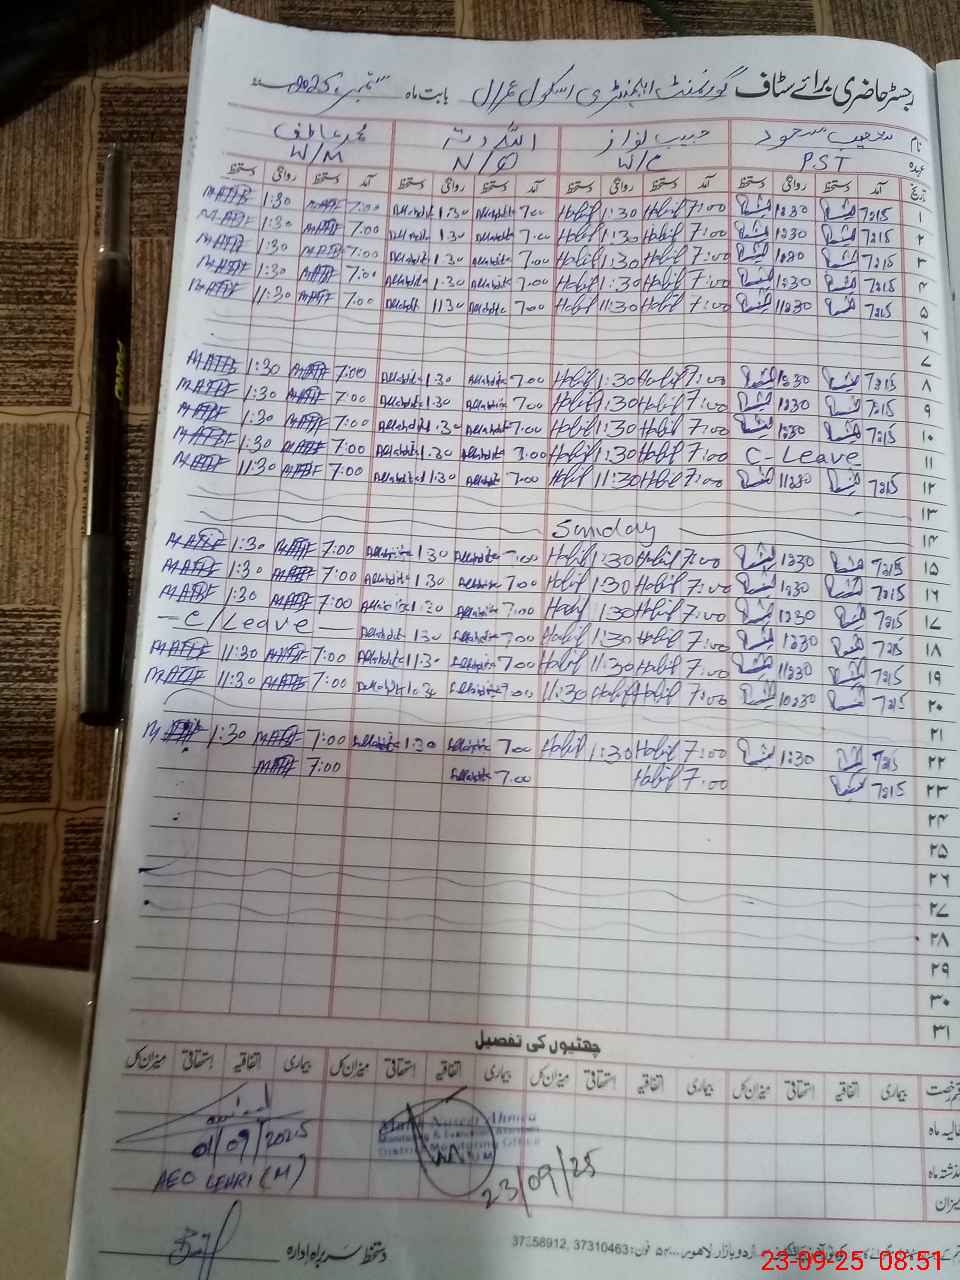 رجسٹر حاضری برائے سٹاف گورنمنٹ ایلیمنٹری اسکول بابت ماہ ستمبر 2025
نام مسعود حبیب نواز اللہ دتہ محمد عاطف
عہدہ P.S.T W/C N/Q W/M
تاریخ آمد دستخط روانگی دستخط آمد دستخط روانگی دستخط آمد دستخط روانگی دستخط آمد دستخط روانگی دستخط
۱ 7:15 12:30 7:00 Habib 1:30 Habib 7:00 Allahditta 1:30 Allahditta 7:00 M.ATIF 1:30 M.ATIF
۲ 7:15 12:30 7:00 Habib 1:30 Habib 7:00 Allahditta 1:30 Allahditta 7:00 M.ATIF 1:30 M.ATIF
۳ 7:15 12:30 7:00 Habib 1:30 Habib 7:00 Allahditta 1:30 Allahditta 7:00 M.ATIF 1:30 M.ATIF
۴ 7:15 12:30 7:00 Habib 1:30 Habib 7:00 Allahditta 1:30 Allahditta 7:00 M.ATIF 1:30 M.ATIF
۵ 7:15 11:30 7:00 Habib 11:30 Habib 7:00 Allahditta 11:30 Allahditta 7:00 M.ATIF 11:30 M.ATIF
۶
۷
۸ 7:15 12:30 7:00 Habib 1:30 Habib 7:00 Allahditta 1:30 Allahditta 7:00 M.ATIF 1:30 M.ATIF
۹ 7:15 12:30 7:00 Habib 1:30 Habib 7:00 Allahditta 1:30 Allahditta 7:00 M.ATIF 1:30 M.ATIF
۱۰ 7:15 12:30 7:00 Habib 1:30 Habib 7:00 Allahditta 1:30 Allahditta 7:00 M.ATIF 1:30 M.ATIF
۱۱ C-Leave 7:00 Habib 1:30 Habib 7:00 Allahditta 1:30 Allahditta 7:00 M.ATIF 1:30 M.ATIF
۱۲ 7:15 11:30 7:00 Habib 11:30 Habib 7:00 Allahditta 11:30 Allahditta 7:00 M.ATIF 11:30 M.ATIF
۱۳
۱۴ Sunday
۱۵ 7:15 12:30 7:00 Habib 1:30 Habib 7:00 Allahditta 1:30 Allahditta 7:00 M.ATIF 1:30 M.ATIF
۱۶ 7:15 12:30 7:00 Habib 1:30 Habib 7:00 Allahditta 1:30 Allahditta 7:00 M.ATIF 1:30 M.ATIF
۱۷ 7:15 12:30 7:00 Habib 1:30 7:00 Allahditta 1:30 Allahditta 7:00 M.ATIF 1:30 M.ATIF
۱۸ 7:15 12:30 7:00 Habib 1:30 Habib 7:00 Allahditta 1:30 Allahditta C/Leave
۱۹ 7:15 11:30 7:00 Habib 11:30 Habib 7:00 Allahditta 11:30 Allahditta 7:00 M.ATIF 11:30 M.ATIF
۲۰ 7:15 7:00 Habib Habib 11:30 7:00 Allahditta Allahditta 7:00 M.ATIF 11:30 M.ATIF
۲۱
۲۲ 7:15 1:30 7:00 Habib 1:30 Habib 7:00 Allahditta 1:30 Allahditta 7:00 M.ATIF 1:30 M.ATIF
۲۳ 7:15 7:00 Habib 7:00 Allahditta 7:00 M.ATIF
۲۴
۲۵
۲۶
۲۷
۲۸
۲۹
۳۰
۳۱
چھٹیوں کی تفصیل
بیماری اتفاقیہ استحقاقی میزان کل بیماری اتفاقیہ استحقاقی میزان کل بیماری اتفاقیہ استحقاقی میزان کل بیماری اتفاقیہ استحقاقی میزان کل
حالیہ ماہ
گذشتہ ماہ
میزان
01/09/2025
AEO LEHRI (M)
Ahmed
Monitoring & Evaluation
District Monitoring Officer
23/09/25
دستخط سربراہ ادارہ
اردو بازار لاہور فون: 37310463, 37358912
23-09-25 08:51